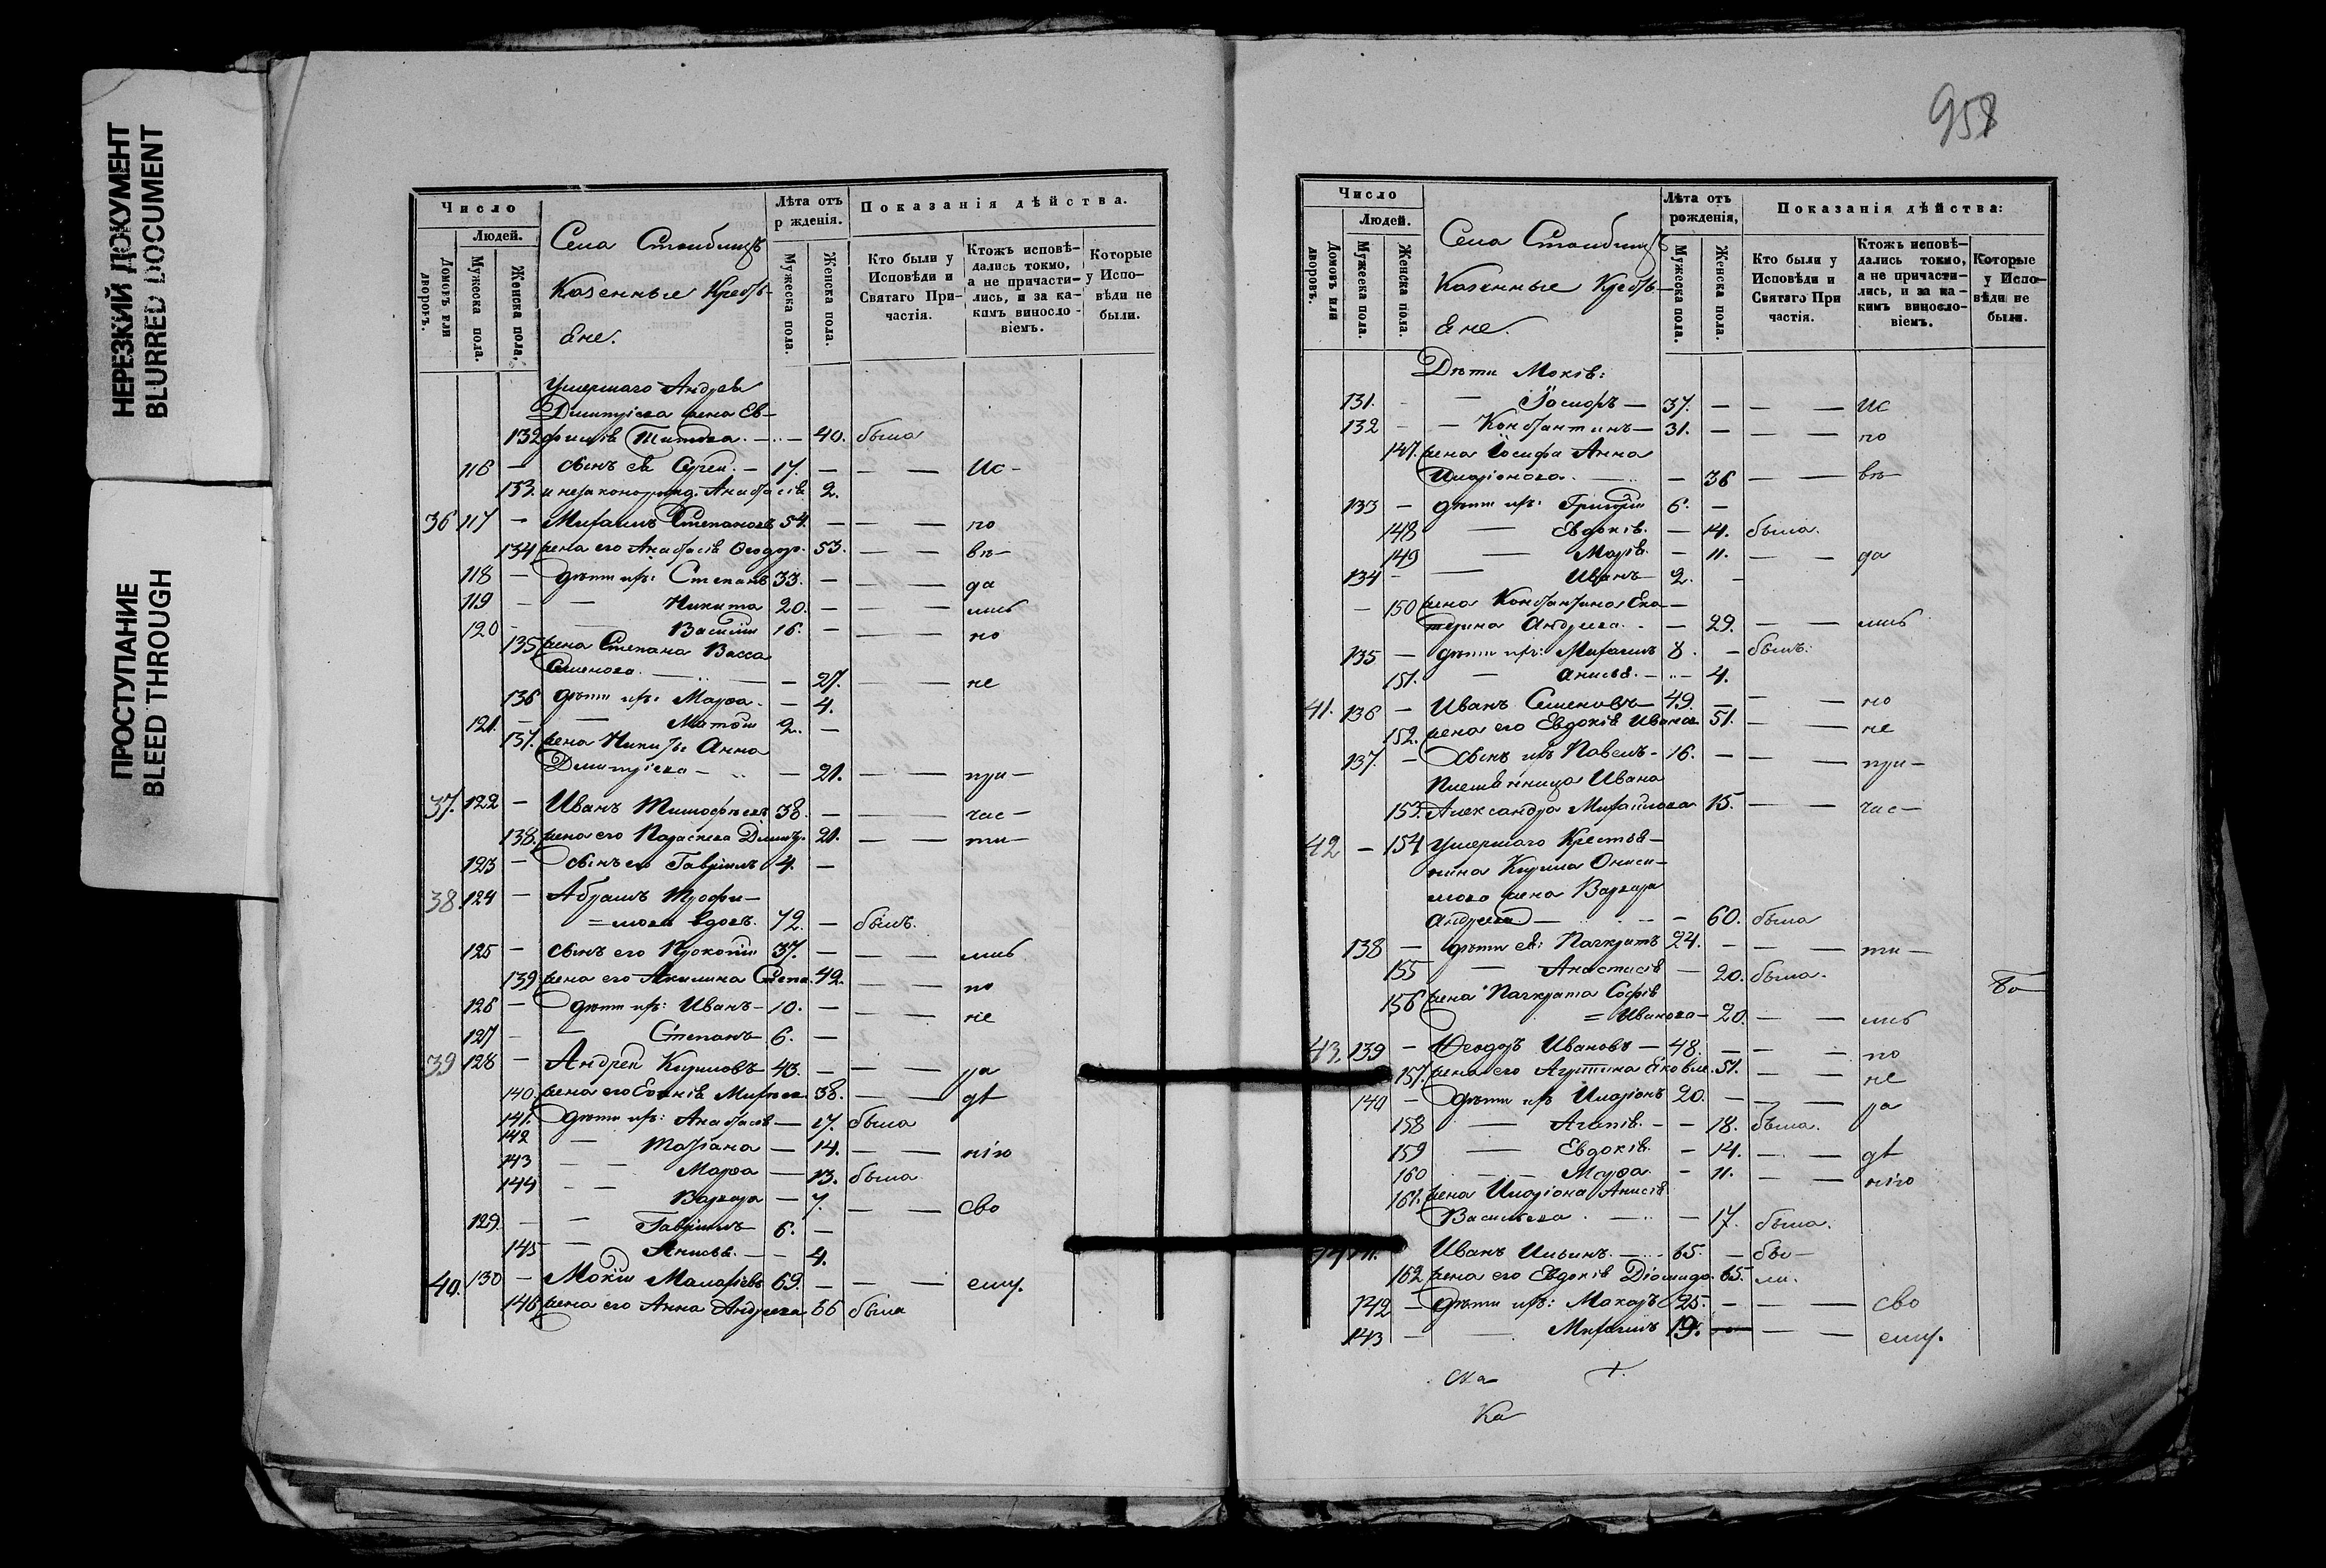 НЕРЕЗКИЙ ДОКУМЕНТ
BLURRED DOCUMENT
ПРОСТУПАНИЕ
BLEED THROUGH
Число
Людей.
Домовъ или дворовъ.
Мужеска пола.
Женска пола.
Села
Казенные Крестья
не.
Лѣта отъ
р жденія.
Мужеска пола.
Женска пола.
Показанія дѣйства.
Кто были у
Исповѣди и
Святаго При-
частія.
Ктожъ исповѣ-
дались токмо,
а не причасти-
лись, и за ка-
кимъ виносло-
віемъ.
Которые
у Испо-
вѣди не
были.
Умершаго Андрея
Димитріева жена Ев-
132 фимія Титова. — 40. была
116 — сынъ ея Сергей. — 17. — — — Ис-
133. и незаконорожд. Анастасія 2.
36 117 — Михаилъ Степановъ 54. — — — по
134 жена его Анастасія Ѳеодор. 53. — — вѣ-
118 — дѣти ихъ: Степанъ 33. — — — да
119 — — Никита 20. — — — лись
120 — — Василій 16. — — — но
135 жена Степана Васса
Семенова. — — 27. — — не
136 дѣти ихъ: Марѳа. — 4.
121. — — Матѳій 2. —
137. жена Никиты Анна
Димитріева — — 21. — — при-
37. 122 — Иванъ Тимофѣевъ 38. — — — час-
138. жена его Параскева Димитр. 21. — — ти-
123 — сынъ его Гавріилъ 4. —
38. 124 — Абрамъ Трофи-
=мовъ вдовъ. 72. — былъ.
125 — сынъ его Прокопій 37. — — — лись
139 жена его Акилина Степа. 42. — — по
126 — дѣти ихъ: Иванъ — 10. — — — не
127 — — Степанъ 6. —
39 128 — Андрей Кириловъ 43. — — — ра
140. жена его Евфимія Михѣева 38. — — дѣ
141. дѣти ихъ: Анастасія — 17. была
142 — Татіана — 14. — — нію
143 — — Марѳа — 13. была
144 — — Варвара — 7. — — сво
129. — — Гавріилъ 6. —
145 — Анисья. — — 4.
40. 130 — Мокій 69. — — — ему.
146 жена его Анна Андреева 66 была
958
Число
Людей.
Домовъ или дворовъ.
Мужеска пола.
Женска пола.
Села
Казенные Крестья
не.
Лѣта отъ
рожденія,
Мужеска пола.
Женска пола.
Показанія дѣйства:
Кто были у
Исповѣди и
Святаго При
частія.
Ктожъ исповѣ-
дались токмо,
а не причасти-
лись, и за ка-
кимъ винословіемъ.
Которые
у Испо-
вѣди не
были.
Дѣти Мокія:
131. — — Іосифъ — 37. — — — Ис
132 — — Константинъ — 31. — — — по
147. жена Іосифа Анна
Иларіонова. — — 36 — — вѣ-
133 — дѣти ихъ: Григорій 6. —
148 — Евдокія. — 14. была.
149 — Марія. — 11. — — да
134 — — Иванъ — 2. —
— 150 жена Константина Ека-
терина Андреева. — 29. — — лись
135 — дѣти ихъ: Михаилъ 8. — былъ.
151. — Анисья. — — 4.
41. 136 — Иванъ Семеновъ — 49. — — — но
152. жена его Евдокія Иванов. 51. — — не
137. — сынъ ихъ Павелъ — 16. — — — при-
Племянница Ивана
153. Александра Михайлова 15. — — час-
42 — 154 умершаго Крестья-
нина Кирила Ониси-
мова жена Варвара
Андреева — — 60. была
138 — дѣти ея: Панкратъ 24. — — — ти-
155 — Анастасія — 20. была.
156 жена Панкрата Софія
= Иванова — 20. — — лись
43. 139 — Ѳеодоръ Ивановъ — 48. — — — по
157. жена его Яковле. 51. — — не
140 — дѣти ихъ Иларіонъ 20. — — — ра
158 — Агапія. — — 18. была.
159 — Евдокія. — 14. — — дѣ
160 — — Марѳа. — 11. — — нію
161. жена Иларіона Анисія
Васильева. — — 17. была.
44 141. Иванъ Ильинъ. — 65. — бы-
162 жена его Евдокія Діомидо. 65. ли.
142 — дѣти ихъ: Макаръ 25. — — — сво
143 — — Михаилъ 19. — — — ему.